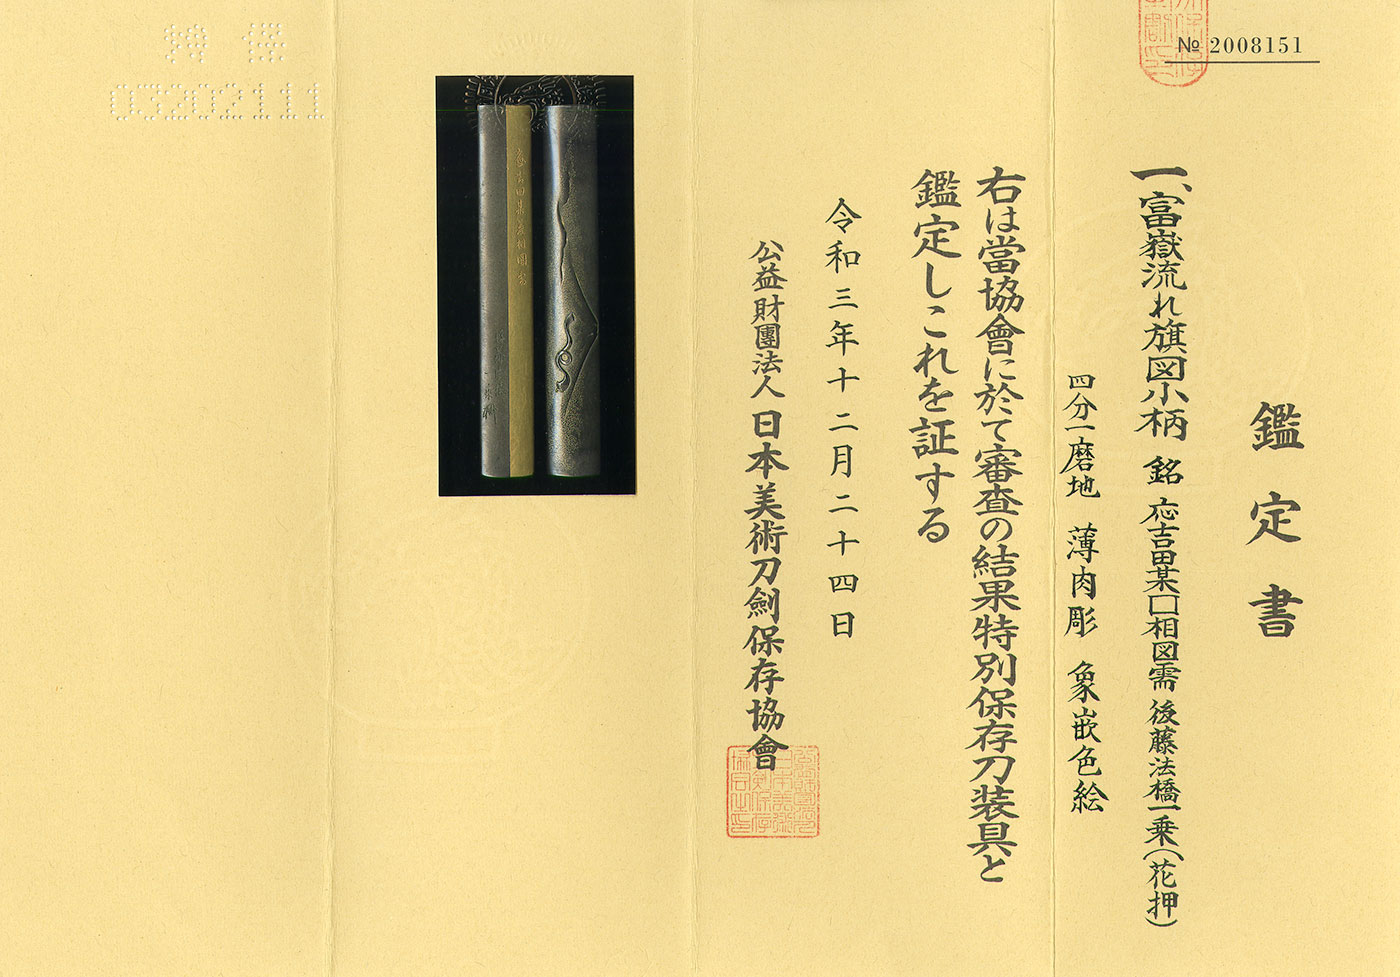 № 2008151
鑑定書
一、富嶽流れ旗図小柄 銘 応吉田某□相図需 後藤法橋一乗(花押)
四分一磨地 薄肉彫 象嵌色絵
右は當協會に於て審査の結果特別保存刀装具と
鑑定しこれを証する
令和三年十二月二十四日
公益財團法人 日本美術刀劍保存協會
03202111